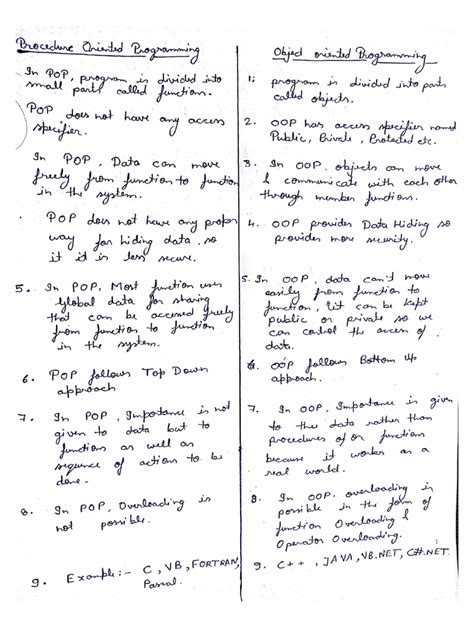 Procedure Oriented Programming
In POP, program is divided into
small parts called functions.
POP does not have any access
specifier.
In POP, Data can move
freely from function to function
in the system.
POP does not have any proper
way for hiding data so
it is less secure.
5. In POP, Most function uses
Global data for sharing
that can be accessed freely
from function to function
in the system.
6. POP follows Top Down
approach
7. In POP, Importance is not
given to data but to
functions as well as
sequence of actions to be
done.
8. In POP, Overloading is
not possible.
9. Example:- C, VB, FORTRAN,
Pascal.
Object oriented Programming
1. program is divided into parts
called objects.
2. OOP has access specifier named
Public, Private, Protected etc.
3. In OOP, objects can move
& communicate with each other
through member functions.
4. OOP provides Data Hiding so
provides more security.
5. In OOP, data can't move
easily from function to
function, it can be kept
public or private so we
can control the access of
data.
6. OOP follows Bottom Up
approach.
7. In OOP, Importance is given
to the data rather than
procedures or function
because it works as a
real world.
8. In OOP, overloading is
possible in the form of
function Overloading &
Operator Overloading.
9. C++, JAVA, VB.NET, C#.NET.